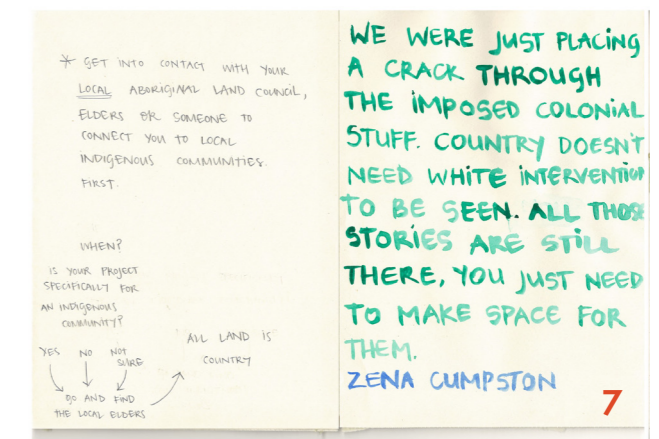 * GET INTO CONTACT WITH YOUR
LOCAL ABORIGINAL LAND COUNCIL,
ELDERS OR SOMEONE TO
CONNECT YOU TO LOCAL
INDIGENOUS COMMUNITIES
FIRST.
WHEN?
IS YOUR PROJECT
SPECIFICALLY FOR
AN INDIGENOUS
COMMUNITY?
YES NO NOT
SURE
GO AND FIND
THE LOCAL ELDERS
ALL LAND IS
COUNTRY
WE WERE JUST PLACING
A CRACK THROUGH
THE IMPOSED COLONIAL
STUFF. COUNTRY DOESN'T
NEED WHITE INTERVENTION
TO BE SEEN. ALL THOSE
STORIES ARE STILL
THERE, YOU JUST NEED
TO MAKE SPACE FOR
THEM.
ZENA CUMPSTON
7